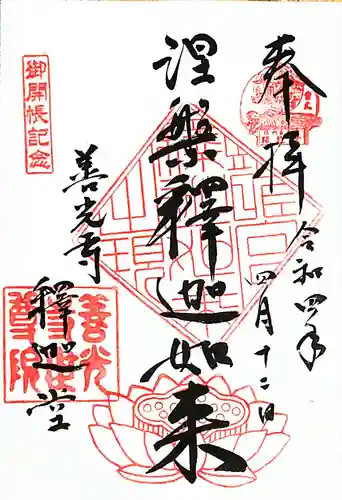 奉拝
令和四年
四月十二日
涅槃釋迦如来
御開帳記念
善光寺
釋迦堂
善光
尊院